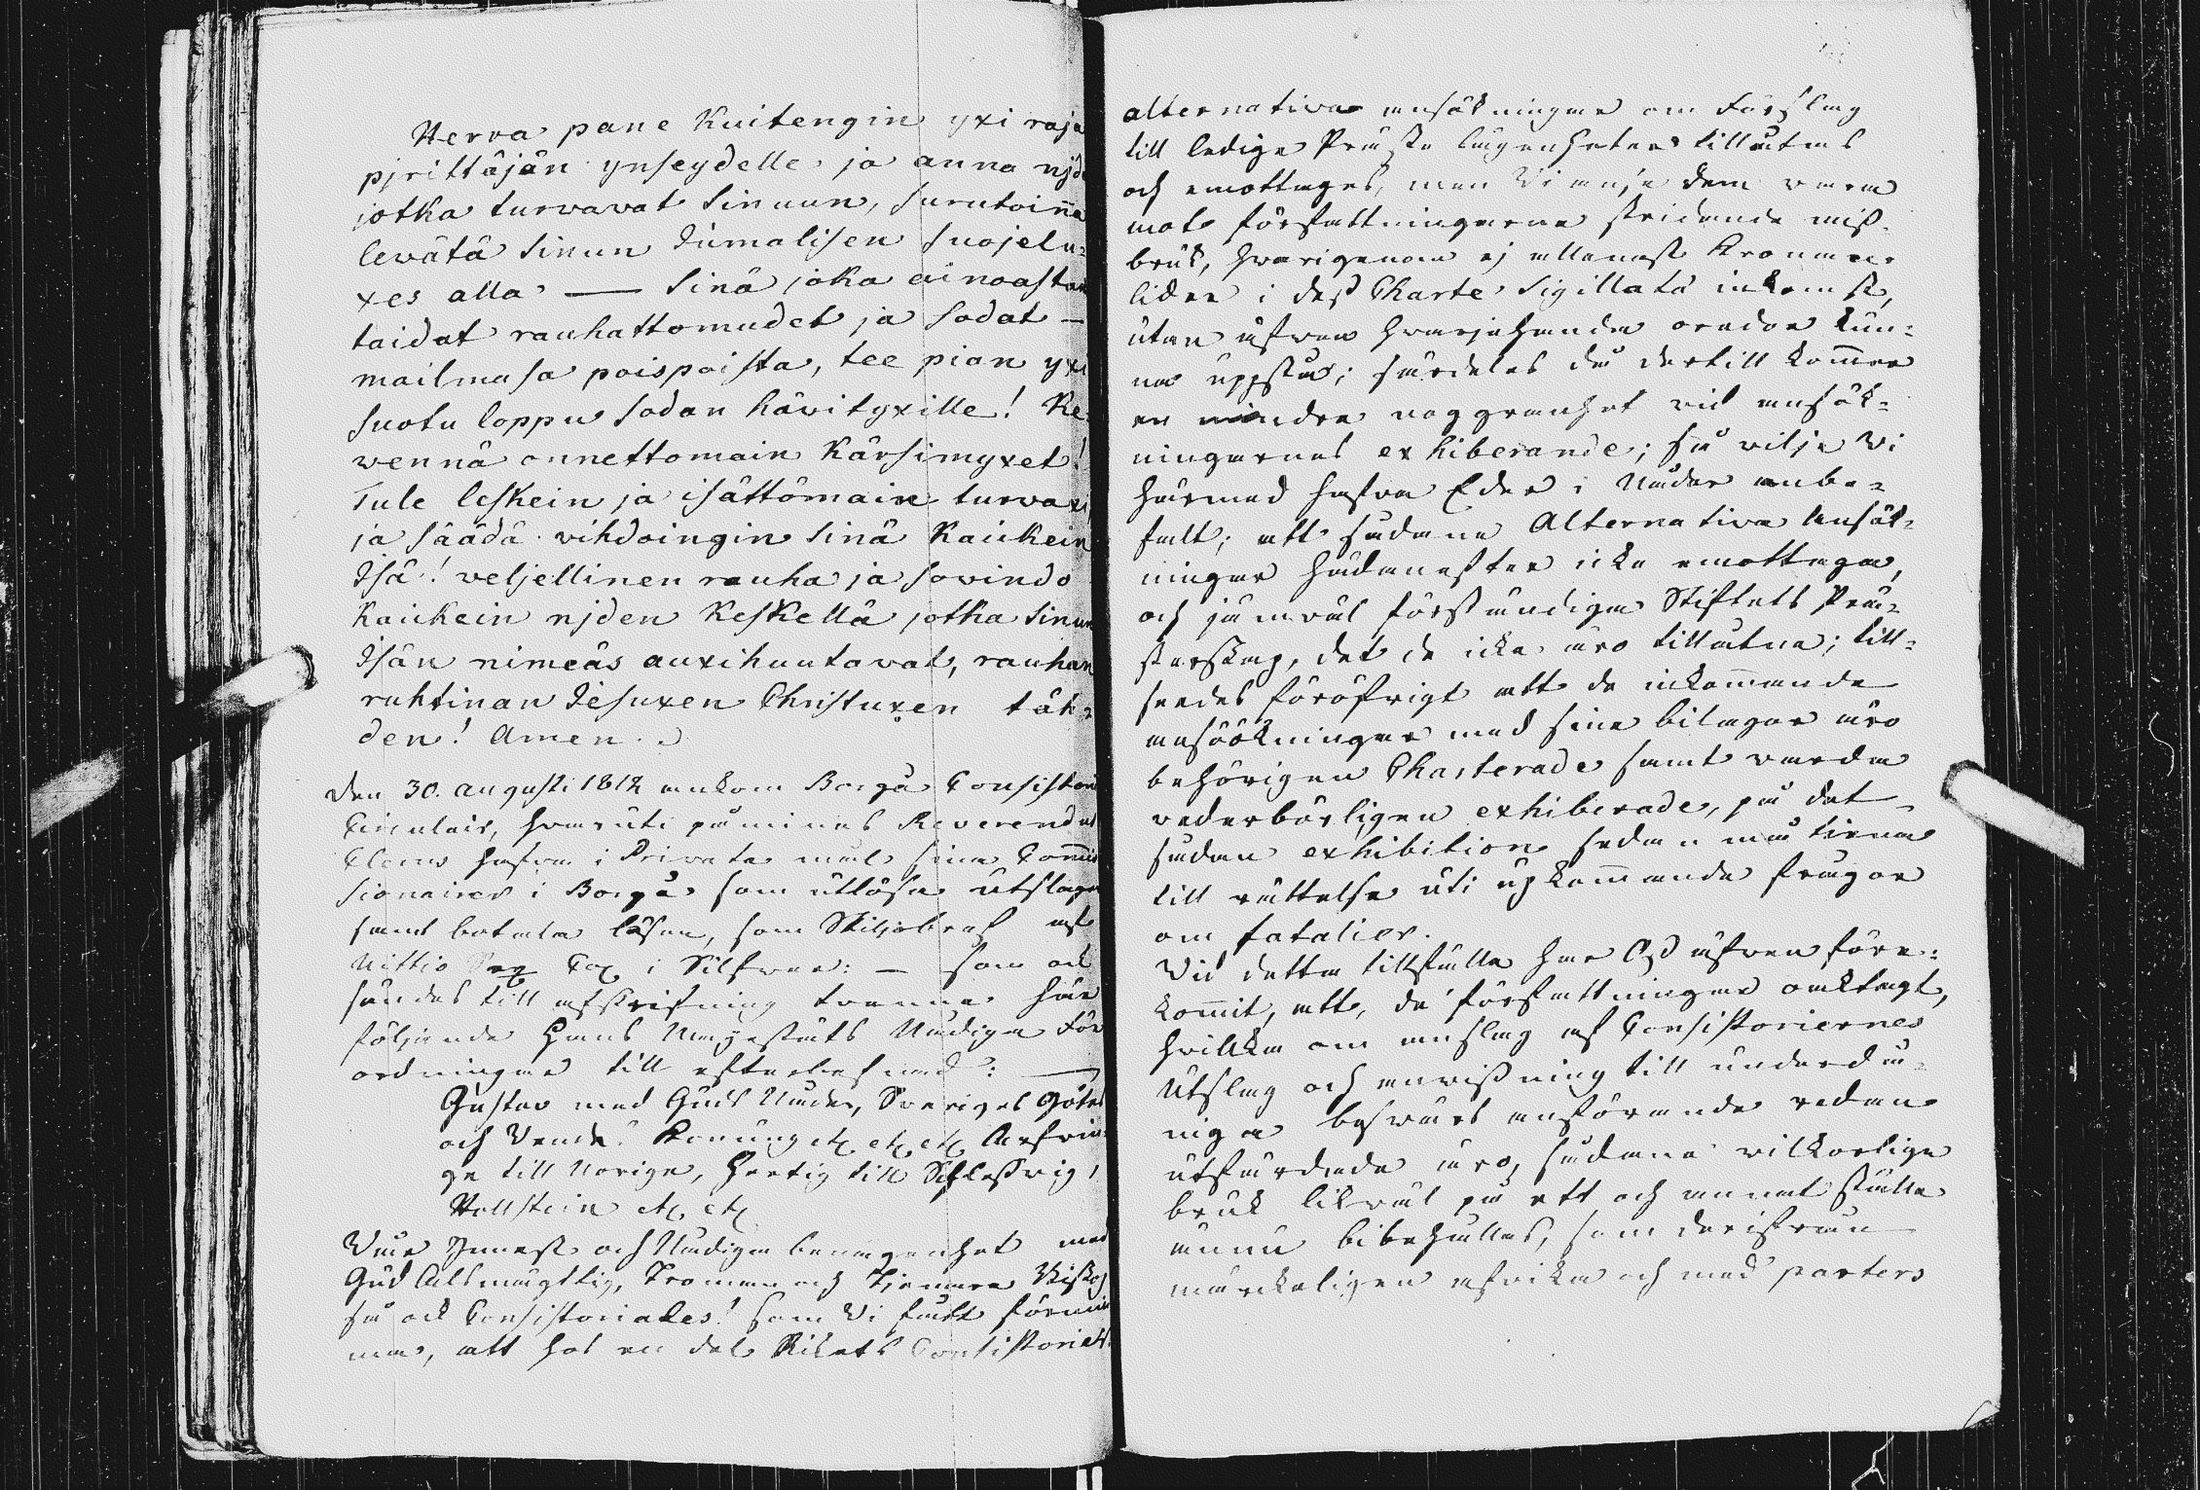 Herra pane Kuitengin yxi raja
pjrittäjän ynseydelle ja anna njd
jotka turwawat Sinuun, surutoinna
lewätä Sinun Jumalisen Suojelu-
xes alla — Sinä joka ainoastan
taidat rauhattomudet ja Sodat —
mailmasa poispoista, tee pian yxi
suotu loppu Sodan häwityxille! Ke-
wennä onnettomain Kärsimyxet!
Tule leskein ja isättömain turwaxi
ja säädä vihdoingin Sinä Kaickein
Isä! veljellinen rauha ja sowindo
Kaickein njden Keskellä jotka Sinun
Isän nimeäs auxihuutawat, rauhan
ruhtinan Jesuxen Christuxen täh-
den! Amen.
Den 30. augusti 1812 ankom Borgå Consistorii
Circulair, hvaruti påminnes Reverendus
Clerus hafva i Privata mål sina Commis
sionairer i Borgå som utlösa utslagen
samt betala lösen, som Skiljobref af
Nittio i Silfver: — som ock
sändes till afskrifning tvenne här
följande Hans Majestäts Nådiga För
ordningar till efterlefnad: —
Gustav med Guds Nåde, Sveriges Götes
och Vendes Konung etc etc etc Arfvin
ge till Norige, Hertig till Schlesswig,
Hollstein etc etc
Vår Ynnest och Nådiga benägenhet med
Gud Allsmägttig, Tromän och Tjenare Biskop
så ock Consistoriales! Som Vi sport förnim
ma, att hos en del Rikets Consistorier
alternativa ansökningar om Förslag
till ledige Prästa lägenheter tillåtas
och emottages, men Vi anse dem vara
mot författningarne stridande miss-
bruk, hvarigenom ej allenast Kronan
lider i dess Charte Sigillatæ inkomst,
utan äfven hvarjehanda oredor kun-
na uppstå; särdeles då dertill kommer
en mindre noggranhet vid ansök-
ningarnes exhiberande; så vilje Vi
härmed hafva Eder i Nåder anbe-
falt; att sådane Alternativa Ansök-
ningar hädanefter icke emottaga,
och jämväl förständiga Stiftets Prä-
sterskap, det de icke äro tillåtna; till-
seendes föröfrigt att de inkommande
ansöökningar med sine bilagor äro
behörigen Charterade samt varda
vederbörligen exhiberade, på det
sådan exhibition sedan må tiena
till rättelse uti upkommande frågor
om fatalier.
Vid detta tillfälle har Oss äfven före-
kommit, att, de författningar oaktagt,
hvilka om anslag af Consistoriernes
Utslag och anvissning till underdå-
niga beswärs anförande redan
utfärdade äro, sådana vilkorlige
bruk likväl på ett och annat ställe
ännu bibehålles, som derifrån
märckeligen afvika och med parters